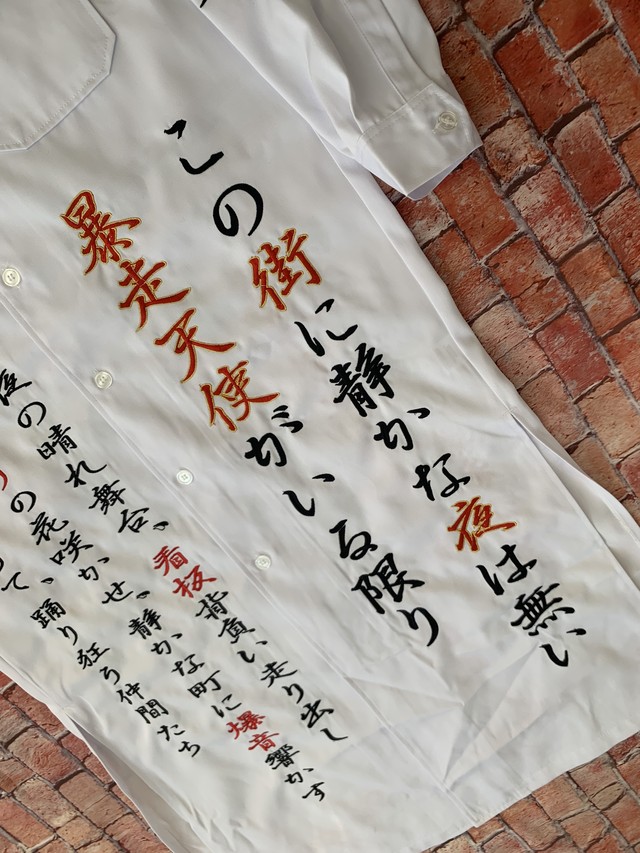 この街に静かな夜は無い
暴走天使がいる限り
夜の晴れ舞台、看板背負い走り出し
の花咲かせ。静かな町に爆音響かす
て、踊り狂う仲間たち